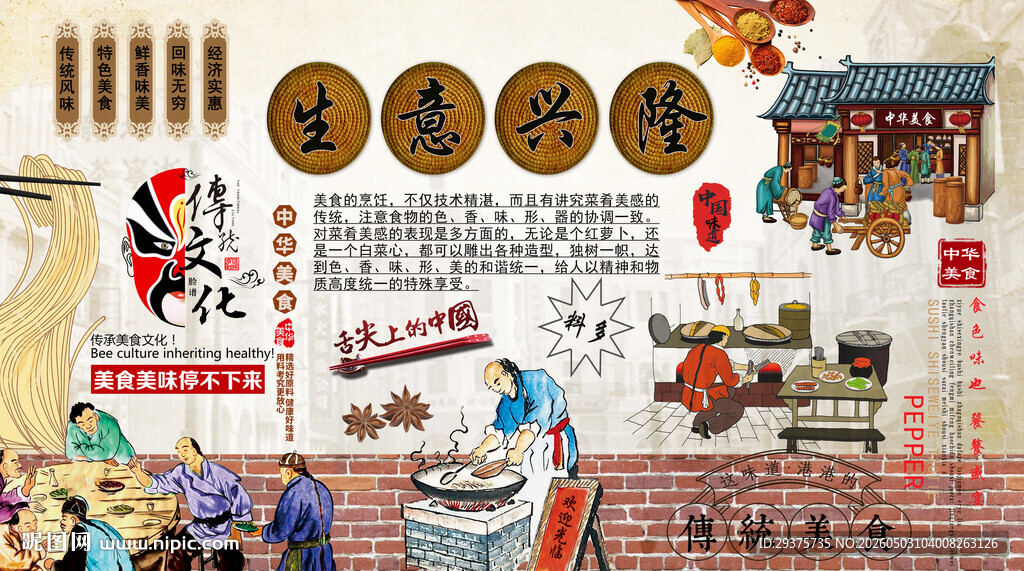 传统风味
特色美食
鲜香味美
回味无穷
经济实惠
生意兴隆
中华美食
傳統文化
脸谱
中华美食
中华美食
精选好原料 健康好味道
用料考究更放心
传承美食文化！
Bee culture inheriting healthy!
美食美味停不下来
美食的烹饪，不仅技术精湛，而且有讲究菜肴美感的
传统，注意食物的色、香、味、形、器的协调一致。
对菜肴美感的表现是多方面的，无论是个红萝卜，还
是一个白菜心，都可以雕出各种造型，独树一帜，达
到色、香、味、形、美的和谐统一，给人以精神和物
质高度统一的特殊享受。
中国味道
舌尖上的中國
料多
中华
美食
食色味也 饕餮盛宴
SUSHI SHI SEWEI YE
PEPPER
欢迎光临
这味道·港港的
傳統美食
昵图网 www.nipic.com
ID:29375735 NO:20260503104008263126